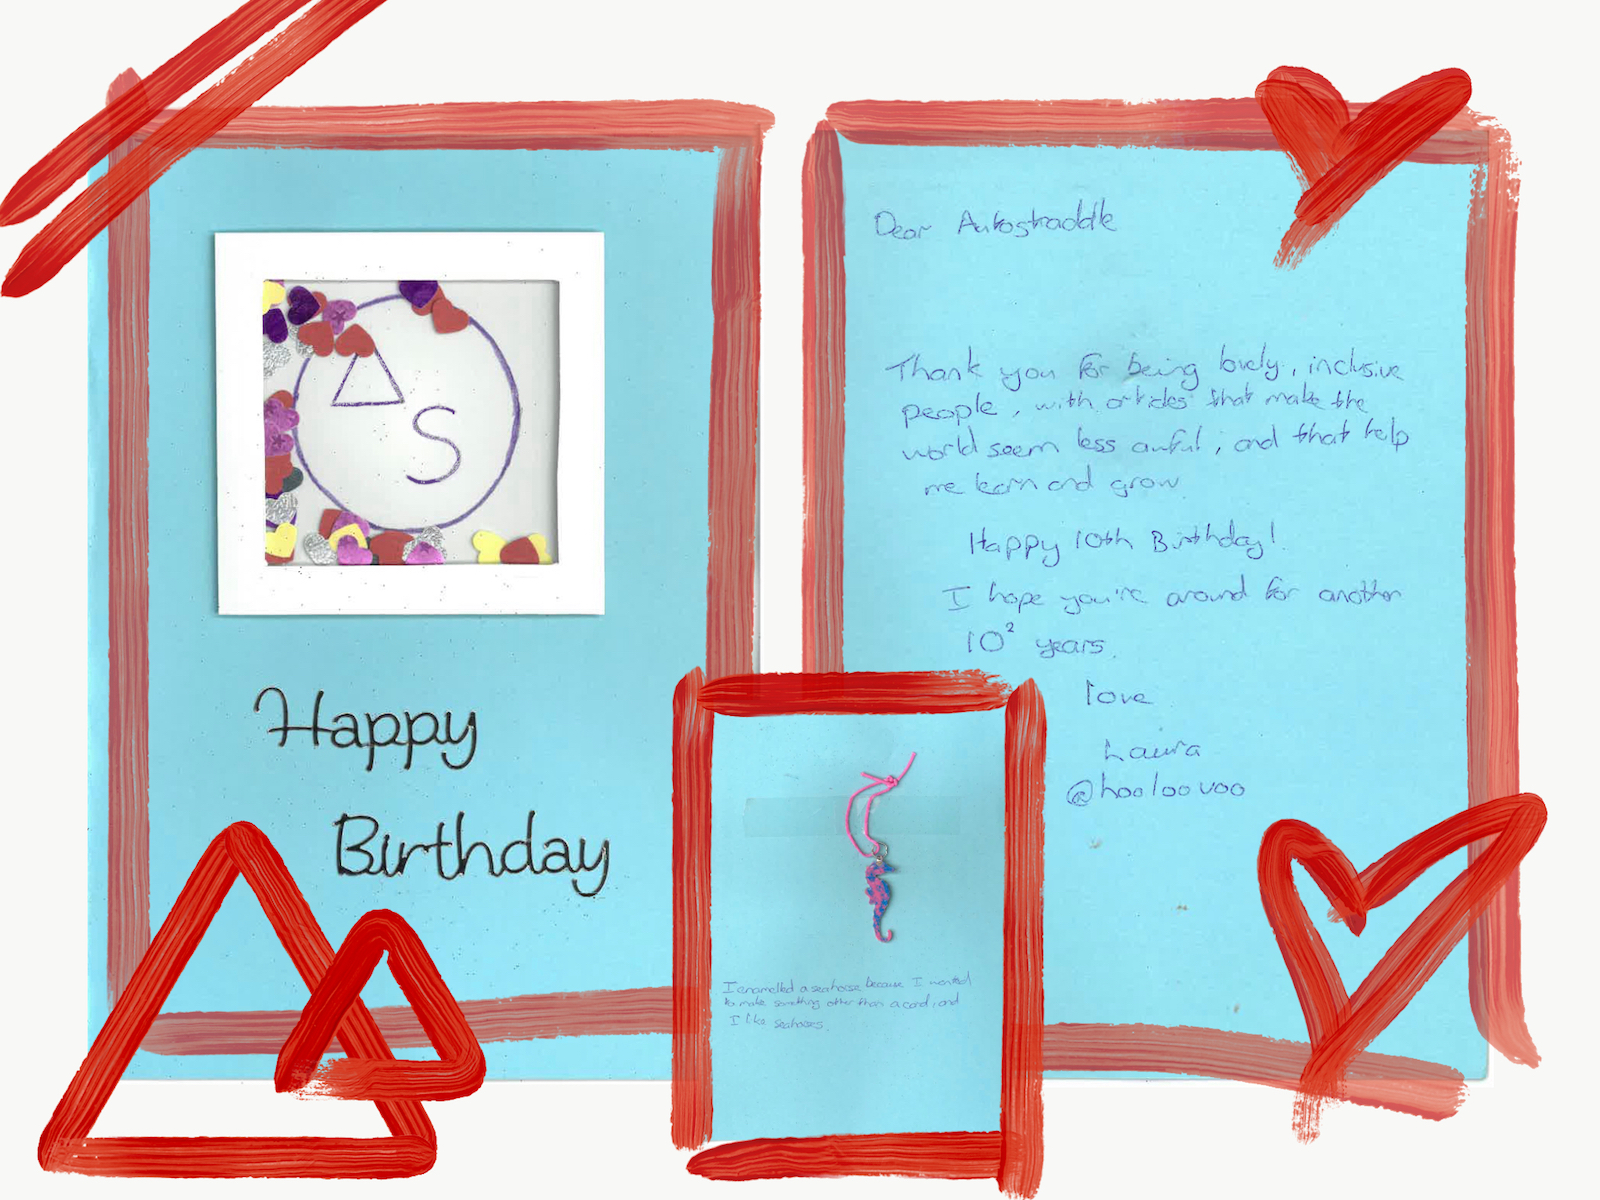 △
S
Happy
Birthday
Dear Autostraddle
Thank you for being lovely, inclusive
people, with articles that make the
world seem less awful, and that help
me learn and grow
Happy 10th Birthday!
I hope you're around for another
10² years.
love
Laura
@hooloovoo
I enamelled a seahorse because I wanted
to make something other than a card, and
I like seahorses.